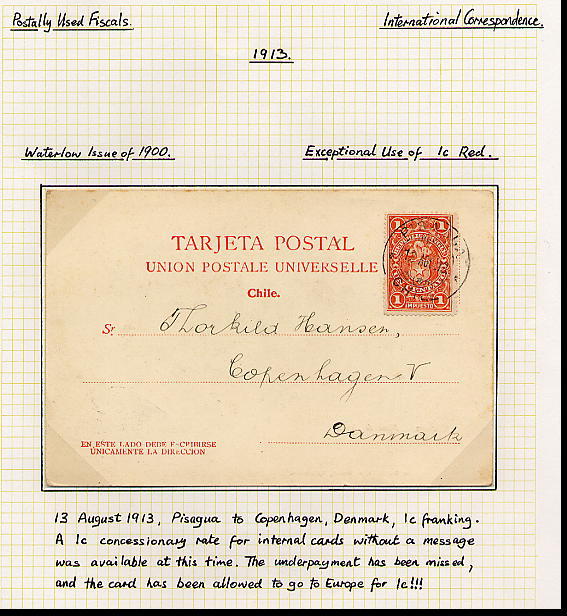 Postally Used Fiscals.
International Correspondence.
1913.
Waterlow Issue of 1900.
Exceptional Use of 1c Red.
TARJETA POSTAL
UNION POSTALE UNIVERSELLE
Chile.
1 1
1 1
IMPUESTO
Sr Thorkild Hansen,
Copenhagen V
Danmark
EN ESTE LADO DEBE ESCRIBIRSE
ÚNICAMENTE LA DIRECCION
13 August 1913, Pisagua to Copenhagen, Denmark, 1c franking.
A 1c concessionary rate for internal cards without a message
was available at this time. The underpayment has been missed,
and the card has been allowed to go to Europe for 1c!!!